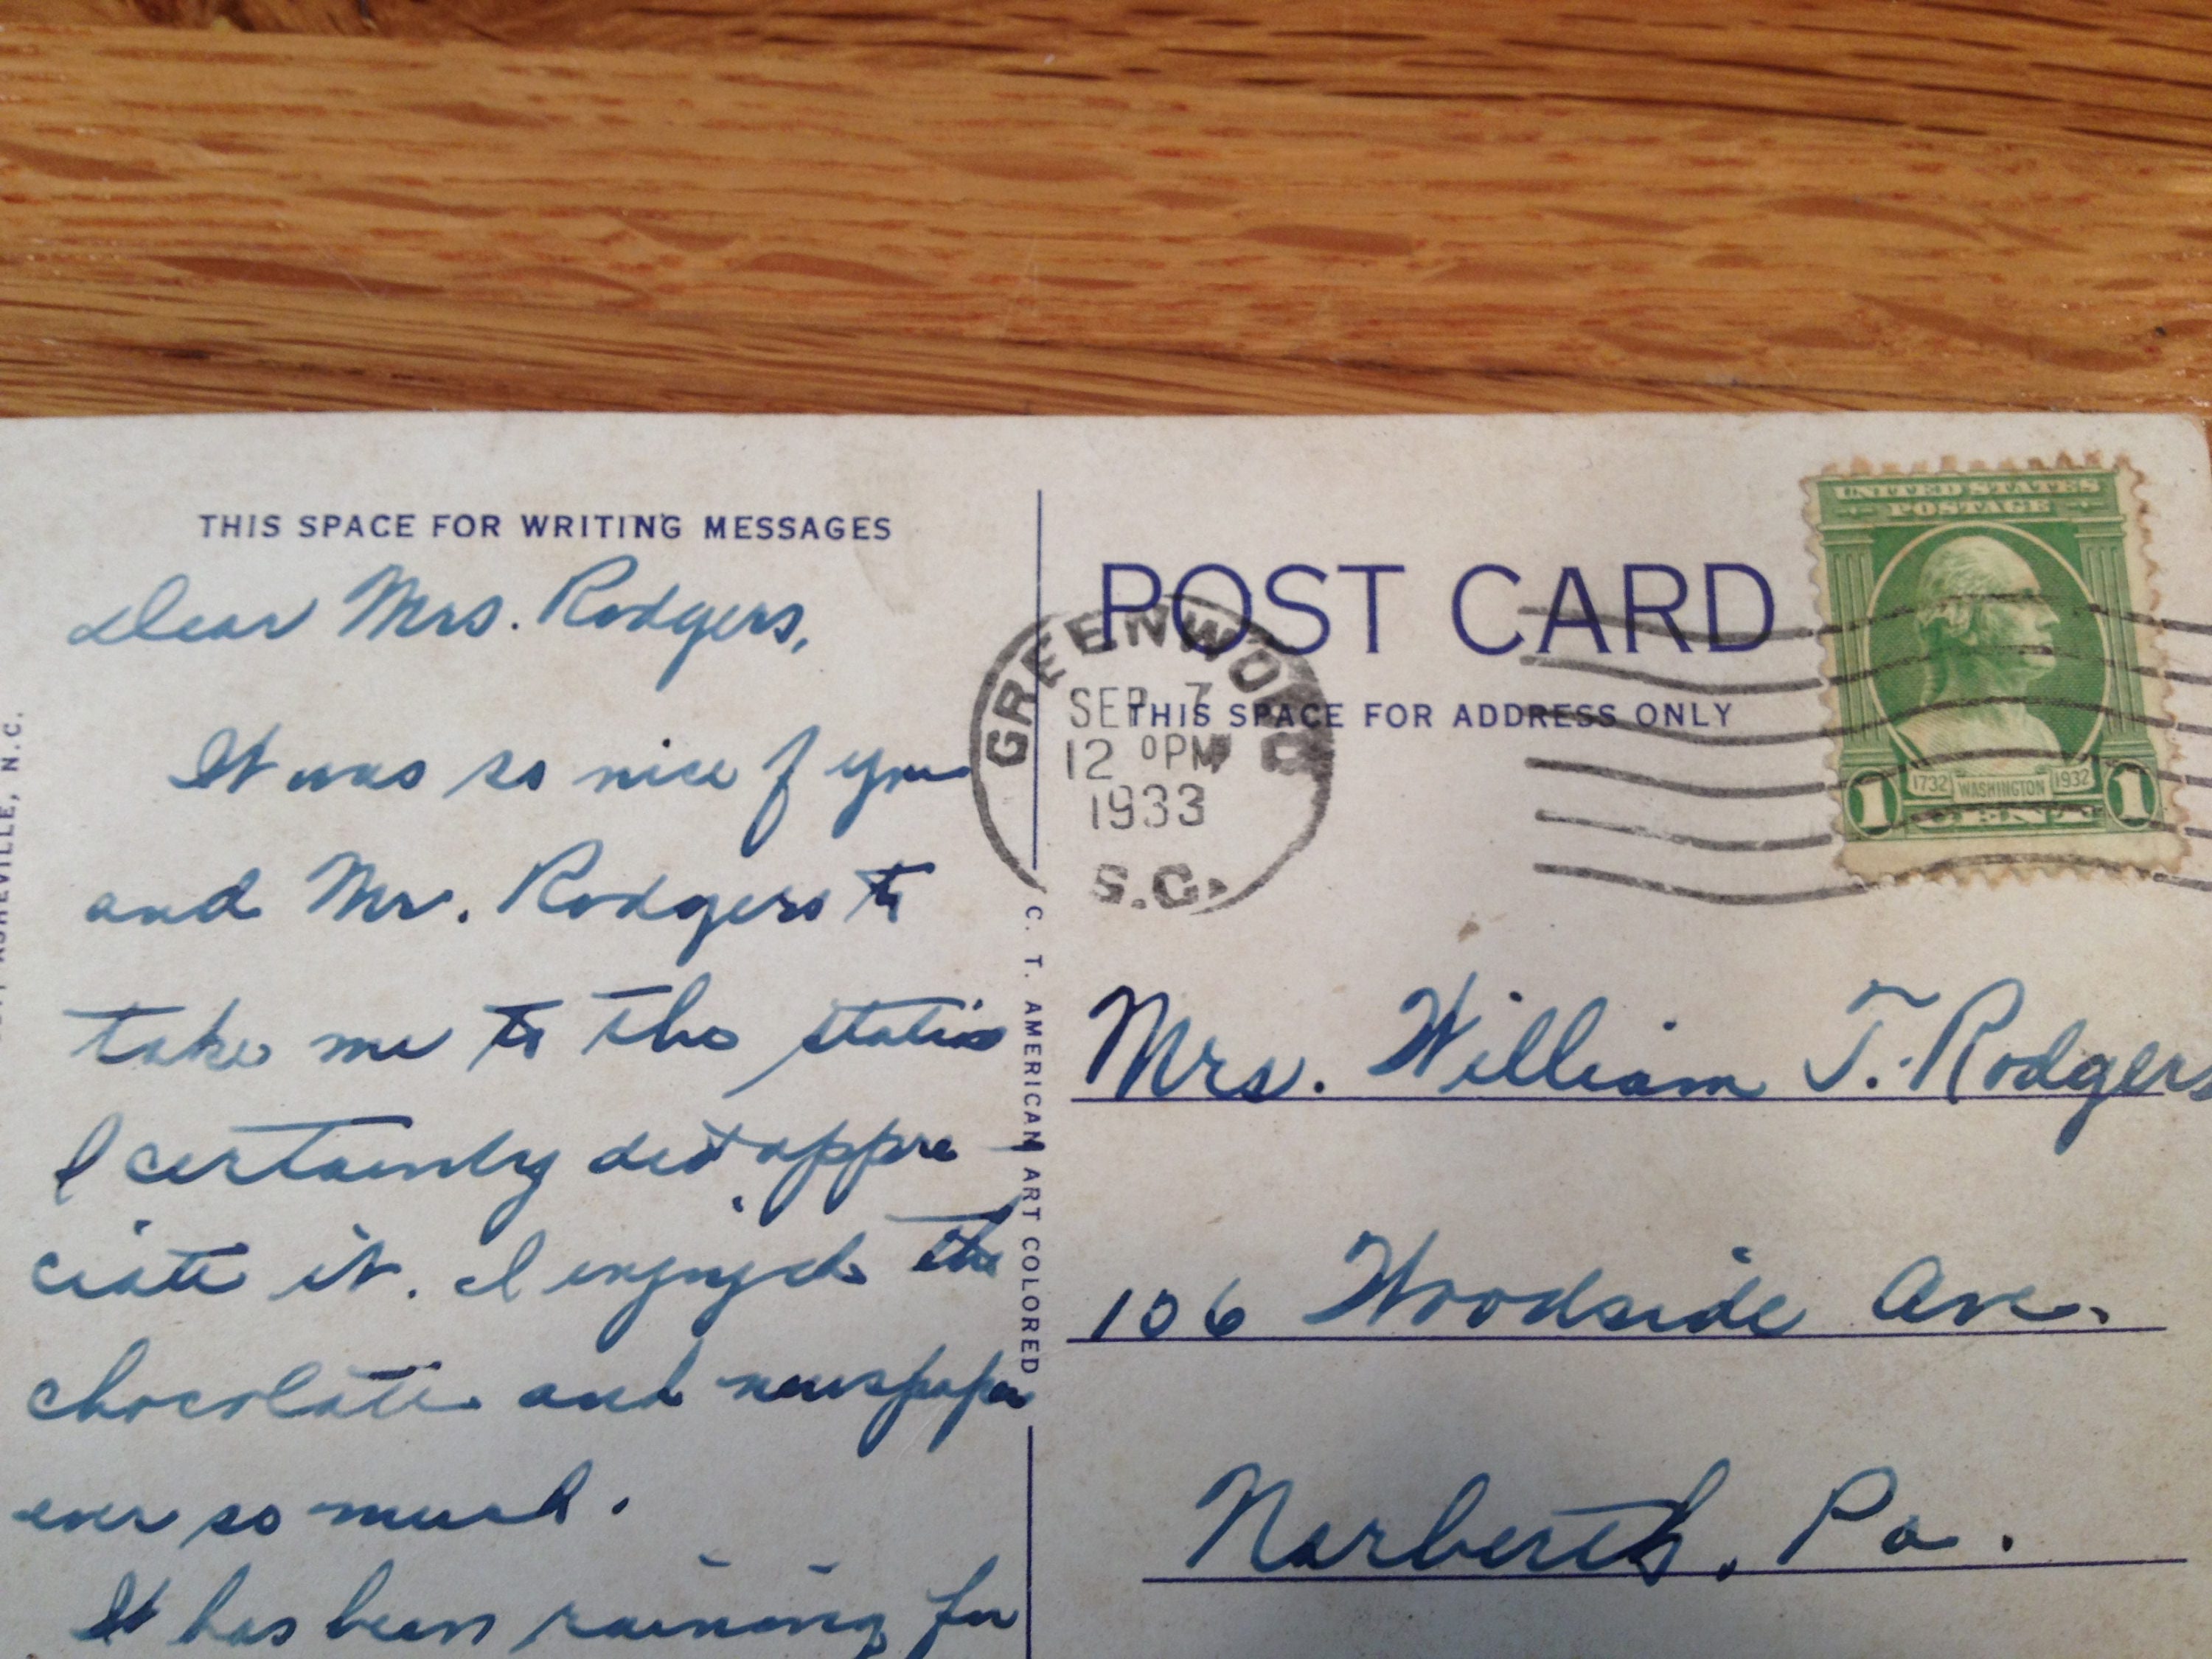 THIS SPACE FOR WRITING MESSAGES
Dear Mrs. Rodgers,
It was so nice of you
and Mr. Rodgers to
take me to the station
I certainly did appre-
ciate it. I enjoyed the
chocolate and newspaper
ever so much.
It has been raining for
ASHEVILLE, N.C.
C. T. AMERICAN ART COLORED
POST CARD
THIS SPACE FOR ADDRESS ONLY
GREENWOOD
SEP 7
12 PM
1933
S.C.
UNITED STATES
POSTAGE
1732 WASHINGTON 1932
1 CENT 1
Mrs. William T. Rodgers
106 Woodside Ave.
Narberth, Pa.